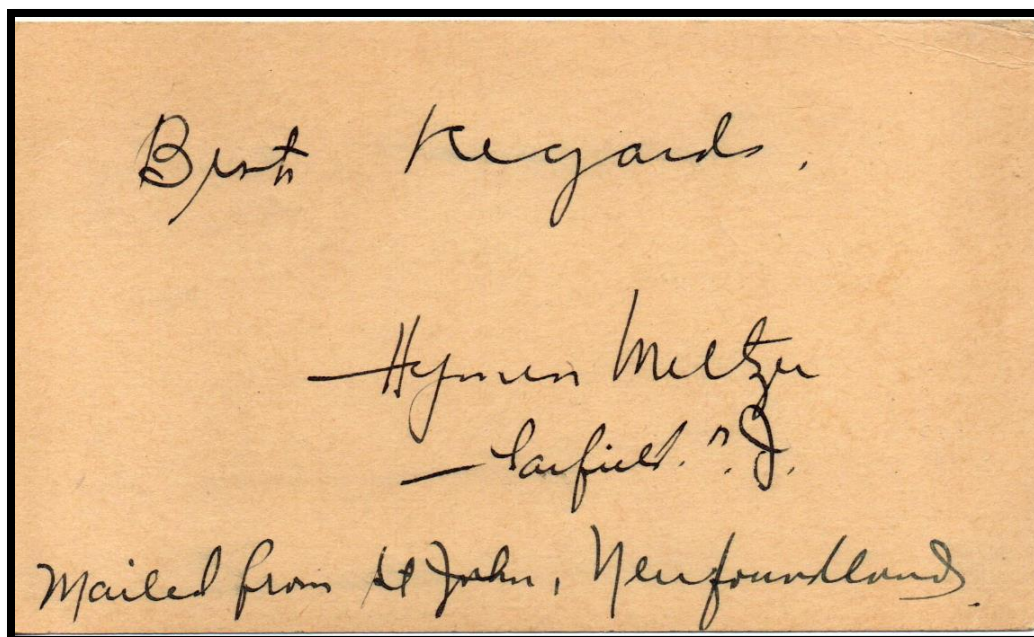 Best Regards.
Hyman Meltzer
Garfield. N.J.
Mailed from St John, Newfoundland.